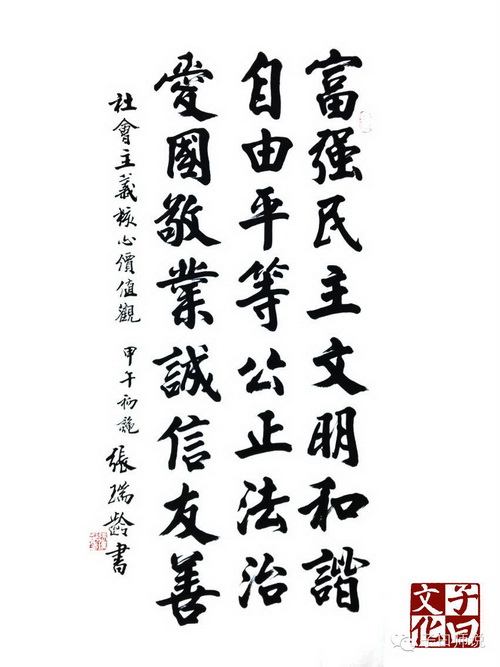 富强民主文明和諧
自由平等公正法治
愛國敬業誠信友善
社會主義核心價值觀 甲午初 張瑞齡書
子曰
文化
子曰师说